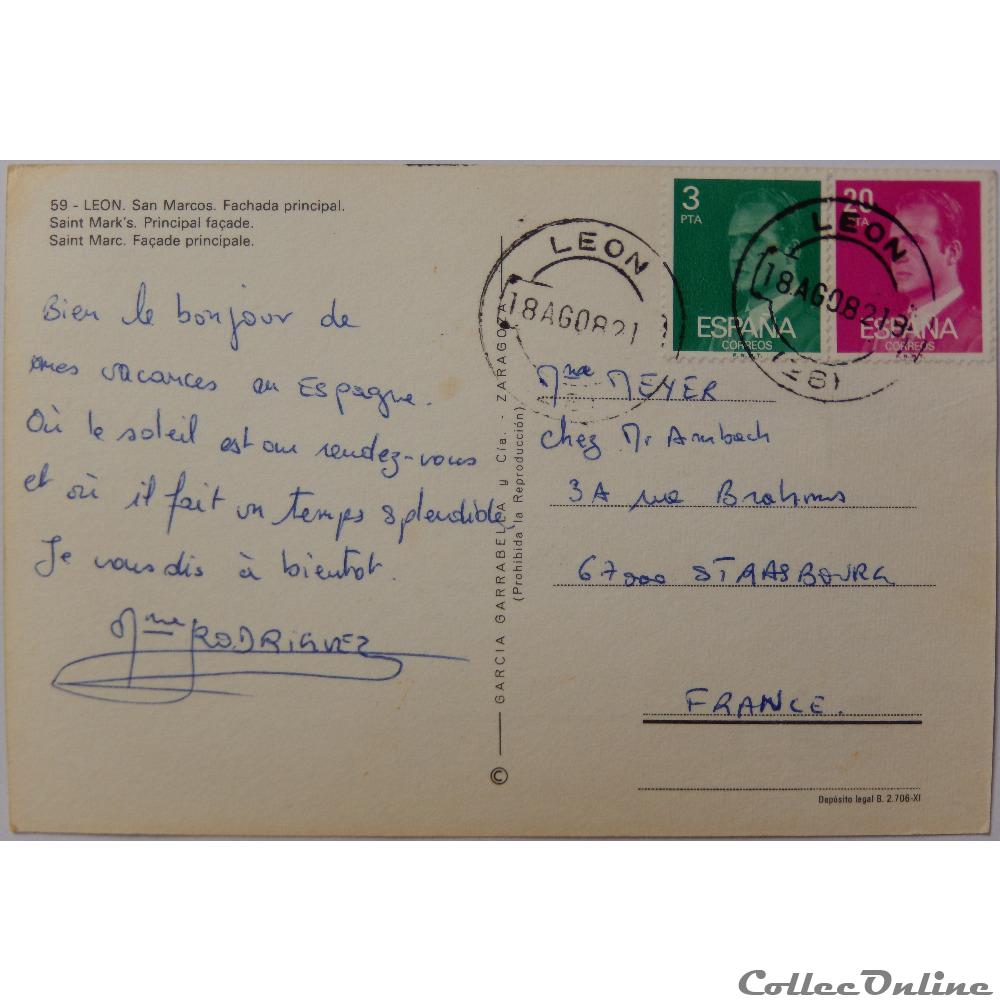 59 - LEON. San Marcos. Fachada principal.
Saint Mark's. Principal façade.
Saint Marc. Façade principale.
Bien le bonjour de
mes vacances en Espagne.
Où le soleil est au rendez-vous
et où il fait un temps splendible
Je vous dis à bientot.
Mme RODRIGUEZ
GARCIA GARRABELLA y Cía. - ZARAGOZA
(Prohibida la Reproducción)
©
LEON
18AGO821
3
PTA
ESPAÑA
CORREOS
F.N.M.T.
20
PTA
ESPAÑA
CORREOS
F.N.M.T.
LEON
18AGO8219
(LEB)
Mme MEYER
chez Mr Ambach
3A rue Brahms
67000 STRASBOURG
FRANCE.
Depósito legal B. 2.706-XI
CollecOnline